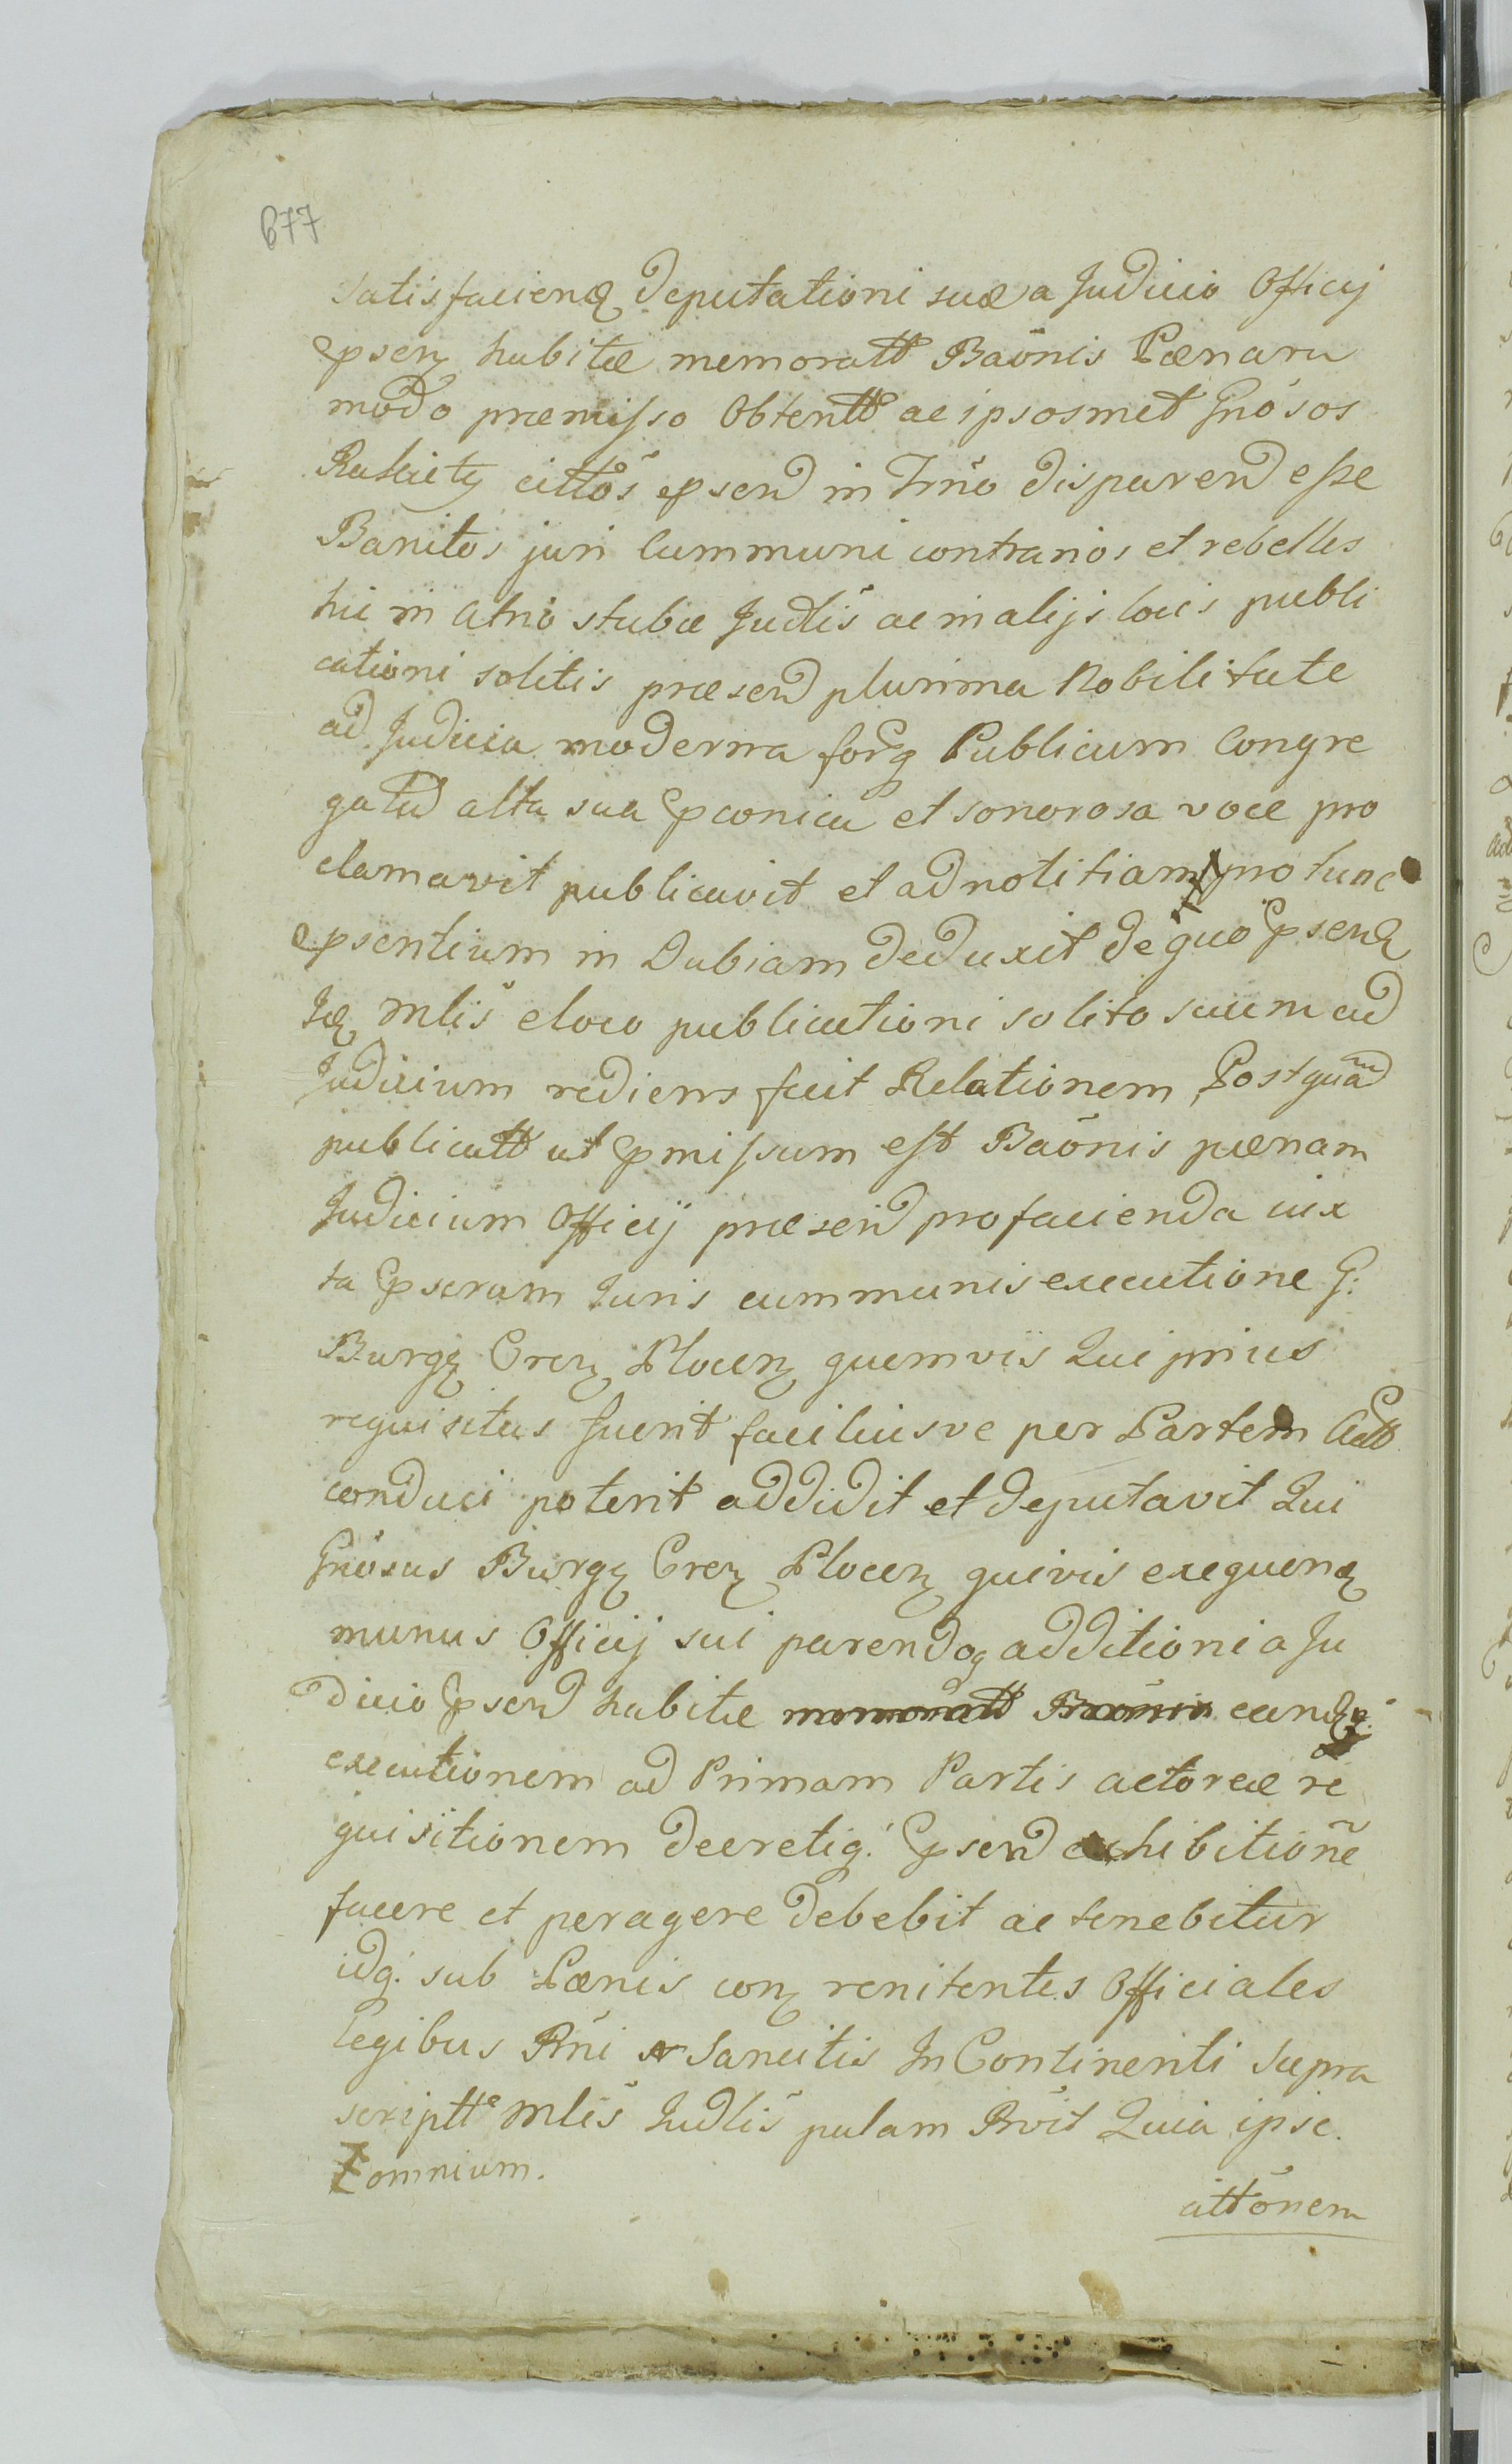 677
satisfacienɋ deputationi suæ a Judicio Officij
pseɳ habitæ memoratt Baõnis Pænam
modo præmisso Obtentt ac ipsosmet Gnõsos
cittõs psend in Trno disparend esse
Banitos juri Cummuni contrarios et rebelles
hic in Atrio stubæ Judlis ac in alijs locis publi
cationi solitis præsend plurima Nobilitate
ad Judicia moderna forɋ Publicum Congre
gatad alta sua pconica et sonorosa voce pro
clamavit publicavit et ad notitiam pro tunc
psentium in Dubiam deduxit de quo psenɋ
Mlis e loco publicationi solito suum ad
Judicium rediens fecit Relationem Postquam
publicatt ut pmissum est Baõnis pænam
Judicium Officij præsend pro facienda iux
ta pscram Juris cummunis executione G:
Burgɋ Creɳ Ploceɳ quemvis Qui prius
requisitus fuerit faciliusve per Partem Actt
conduci poterit addidit et deputavit Qui
Gnõsus Burgɋ Creɳ Ploceɳ quivis exequenɋ
munus Officij sui parendoq additioni a Ju
dicio psend habitæ eandɋ
executionem ad Primam Partis actoreæ re
quisitionem decretiq: psend exhibitione
facere et peragere debebit ac tenebitur
idq: sub Pænis conɳ renitentes Officiales
legibus Rni Sancitis In Continenti Supra
scriptt Mlis Judlis palam Rvit Quia ipse.
omnium.
cittõnem